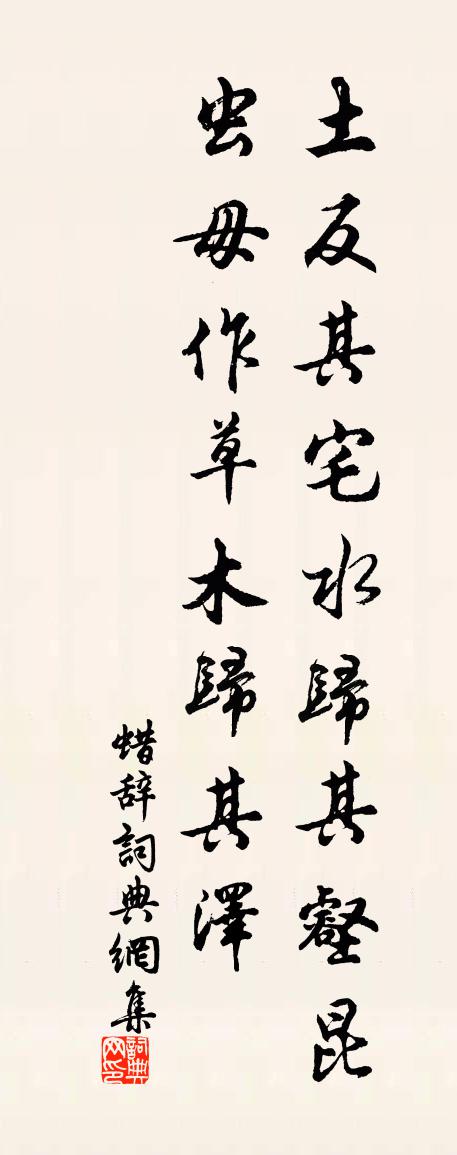 土反其宅水歸其壑昆
虫毋作草木歸其澤
蜡辞詞典網集
詞典网印